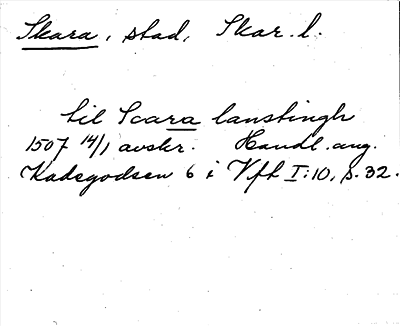 Skara, stad, Skar. l.
til Scara lanstingh
1507 14/1 avskr. Handl. ang.
Kadsgodsen 6 i Vfh I:10, s. 32.